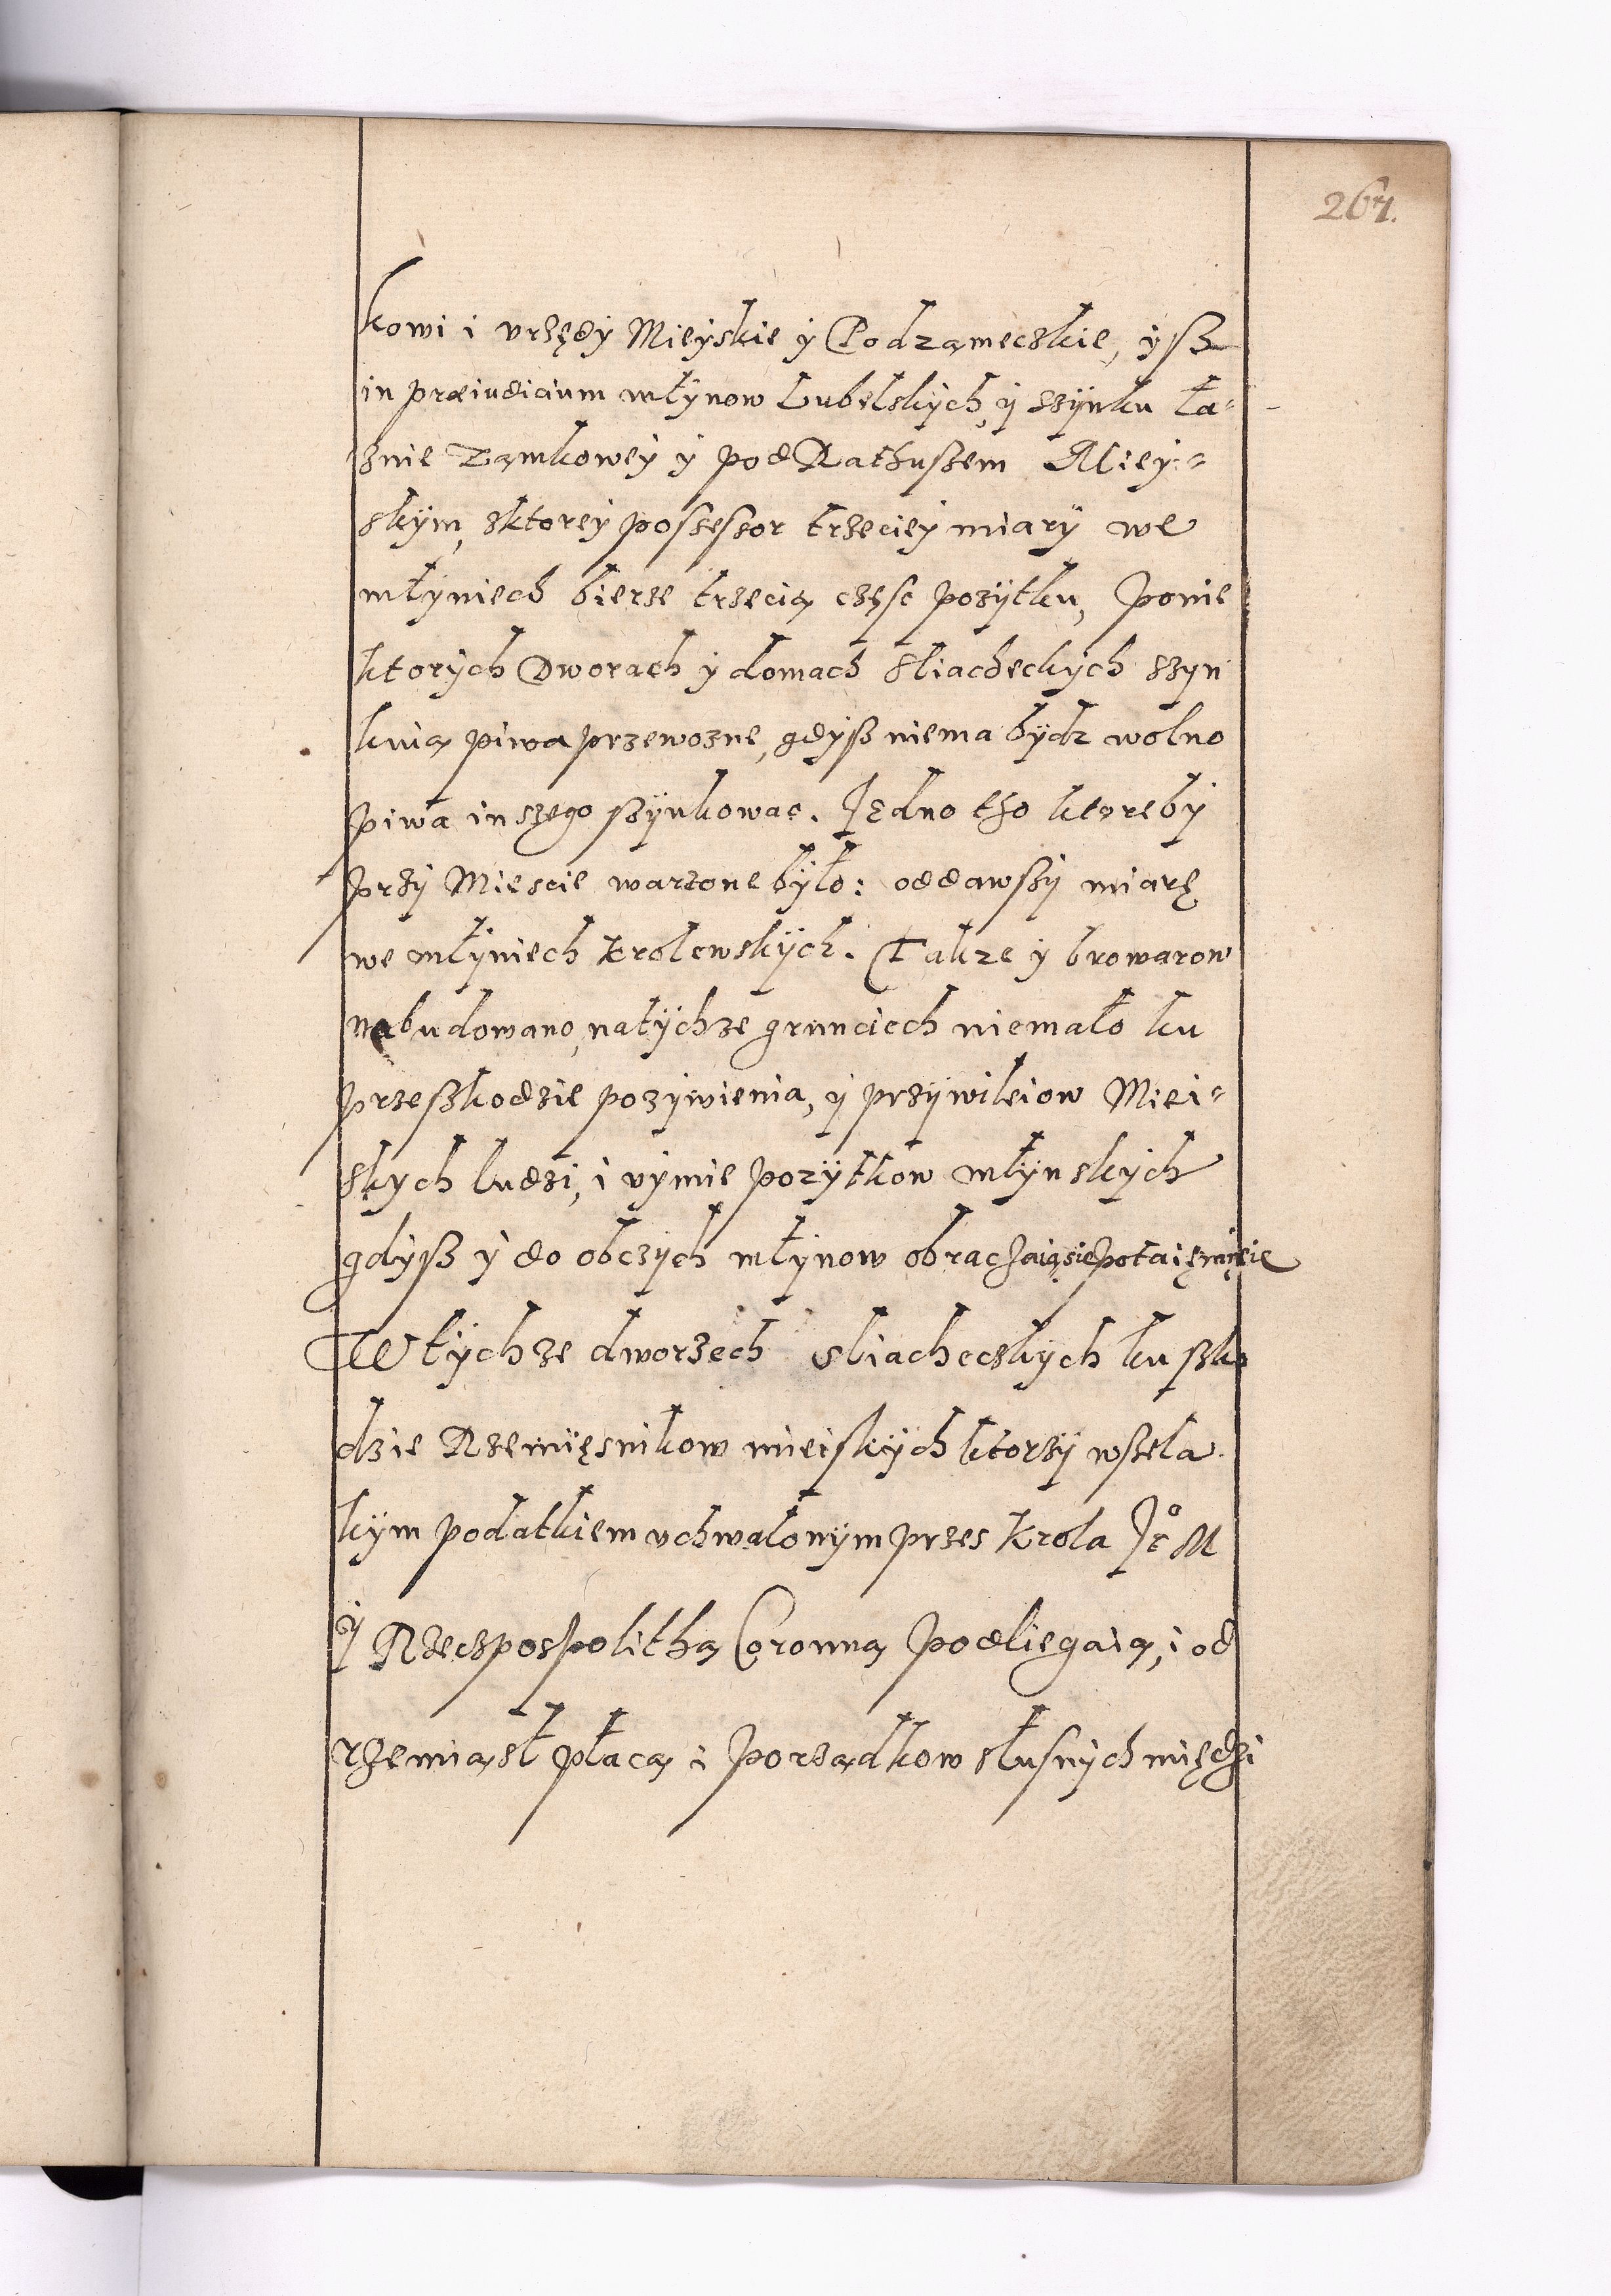 267.
kowi i vrzędÿ Mieÿskie ÿ Podzameczkie, ÿsz
in præiudicium młÿnow Lubelskÿch, ÿ szÿnku ła-
znie Zamkoweÿ ÿ pod Rathuszem Mieÿ-
skÿm, sktoreÿ possessor trzecieÿ miarÿ we
młÿniech bierze trzecią częsc pozÿtku, ponie
ktorÿch Dworach ÿ domach Sliacheckÿch szÿn
kuią piwa przewozne, gdÿsz niema bÿdz wolno
piwa inszego szÿnkowac. Jedno tho ktorebÿ
przÿ Miescie warzone bÿło: oddawszÿ miarę
we młÿniech Krolewskÿch. Takze ÿ browarow
nabudowano, natÿchze grunciech niemało ku
przeszkodzie pozÿwienia, ÿ przÿwileiow Miei-
skÿch ludzi, i vÿmie pozÿtkow młÿnskÿch
gdÿsz ÿ do obczÿch młÿnow obraczaią sie potaięmnie
W tÿchze dworzech sliacheczkÿch ku szko
dzie Rzemięsnikow mieiskÿch ktorzÿ wszela
kÿm podatkiem vchwalonÿm przes Krola Jᵒ M
ÿ Rzeczpospolithą Coronną podliegaią, i od
rzemiąsł płacą i porządkow słusnÿch międzi